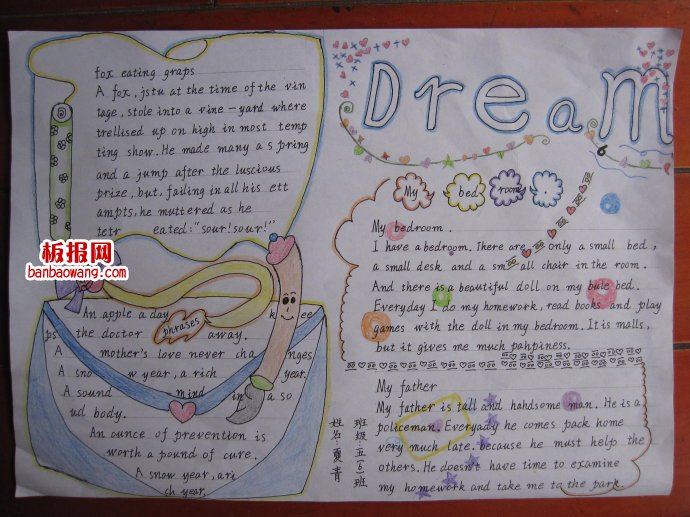 fox eating graps
A fox, jstu at the time of the vin
tage, stole into a vine-yard where
trellised up on high in most temp
ting show. He made many a spring
and a jump after the luscious
prize, but, failing in all his ett
ampts, he muttered as he
tetr eated: "sour! sour!"
板报网
banbaowang.com
An apple a day k ee
ps the doctor away.
phrases
A mother's love never cha nges
A snow year, a rich year.
A sound mind in a so
ud body.
An ounce of prevention is
worth a pound of cure.
A snow year, ari
ch year.
Dream
My bed room .
My bedroom.
I have a bedroom. There are only a small bed,
a small desk and a small chair in the room.
And there is a beautiful doll on my bule bed.
Everyday I do my homework, read books and play
games with the doll in my bedroom. It is malls,
but it gives me much pahpiness.
My father
My father is tall and handsome man. He is a
policeman. Everyady he comes pack home
very much late. because he must help the
others. He doesn't have time to examine
my homework and take me to the park.
班级:五(6)班
姓名:夏青